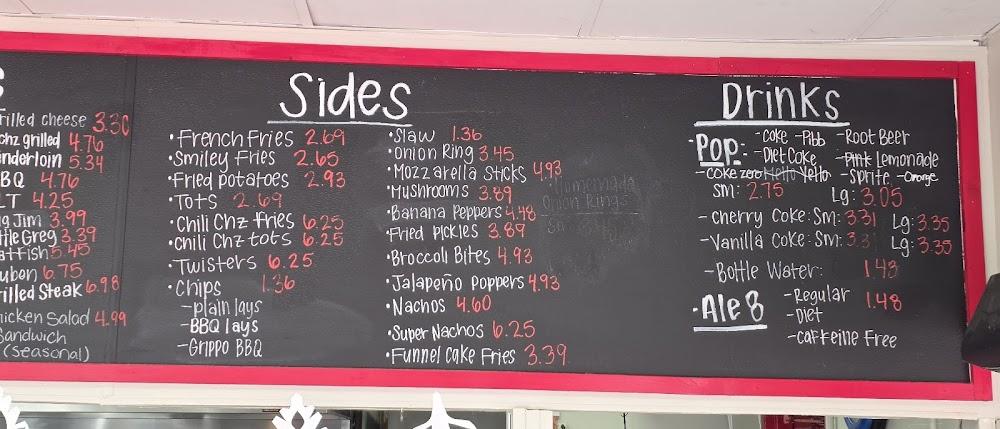 s
rilled cheese 3.30
chz grilled 4.76
enderloin 5.34
BQ 4.76
LT 4.25
g Jim 3.99
tle Greg 3.39
atfish 5.45
uben 6.75
rilled Steak 6.98
hicken Salad 4.99
Sandwich
(seasonal)
Sides
•French Fries 2.69
•Smiley Fries 2.65
•Fried potatoes 2.93
•Tots 2.69
•Chili Chz fries 6.25
•Chili Chz tots 6.25
•Twisters 6.25
•Chips 1.36
-plain lays
-BBQ lays
-Grippo BBQ
•Slaw 1.36
•Onion Ring 3.45
•Mozzarella Sticks 4.93
•Mushrooms 3.89
•Banana Peppers 4.48
•Fried Pickles 3.89
•Broccoli Bites 4.93
•Jalapeño Poppers 4.93
•Nachos 4.60
•Super Nachos 6.25
•Funnel Cake Fries 3.39
Homemade
Onion Rings
Drinks
•Pop: -Coke -Pibb -Root Beer
-Diet Coke -Pink Lemonade
-Coke zero -Mello Yello -Sprite -Orange
Sm: 2.75 Lg: 3.05
-Cherry Coke: Sm: 3.31 Lg: 3.35
-Vanilla Coke: Sm: 3.31 Lg: 3.35
-Bottle Water: 1.48
•Ale 8 -Regular 1.48
-Diet
-Caffeine Free